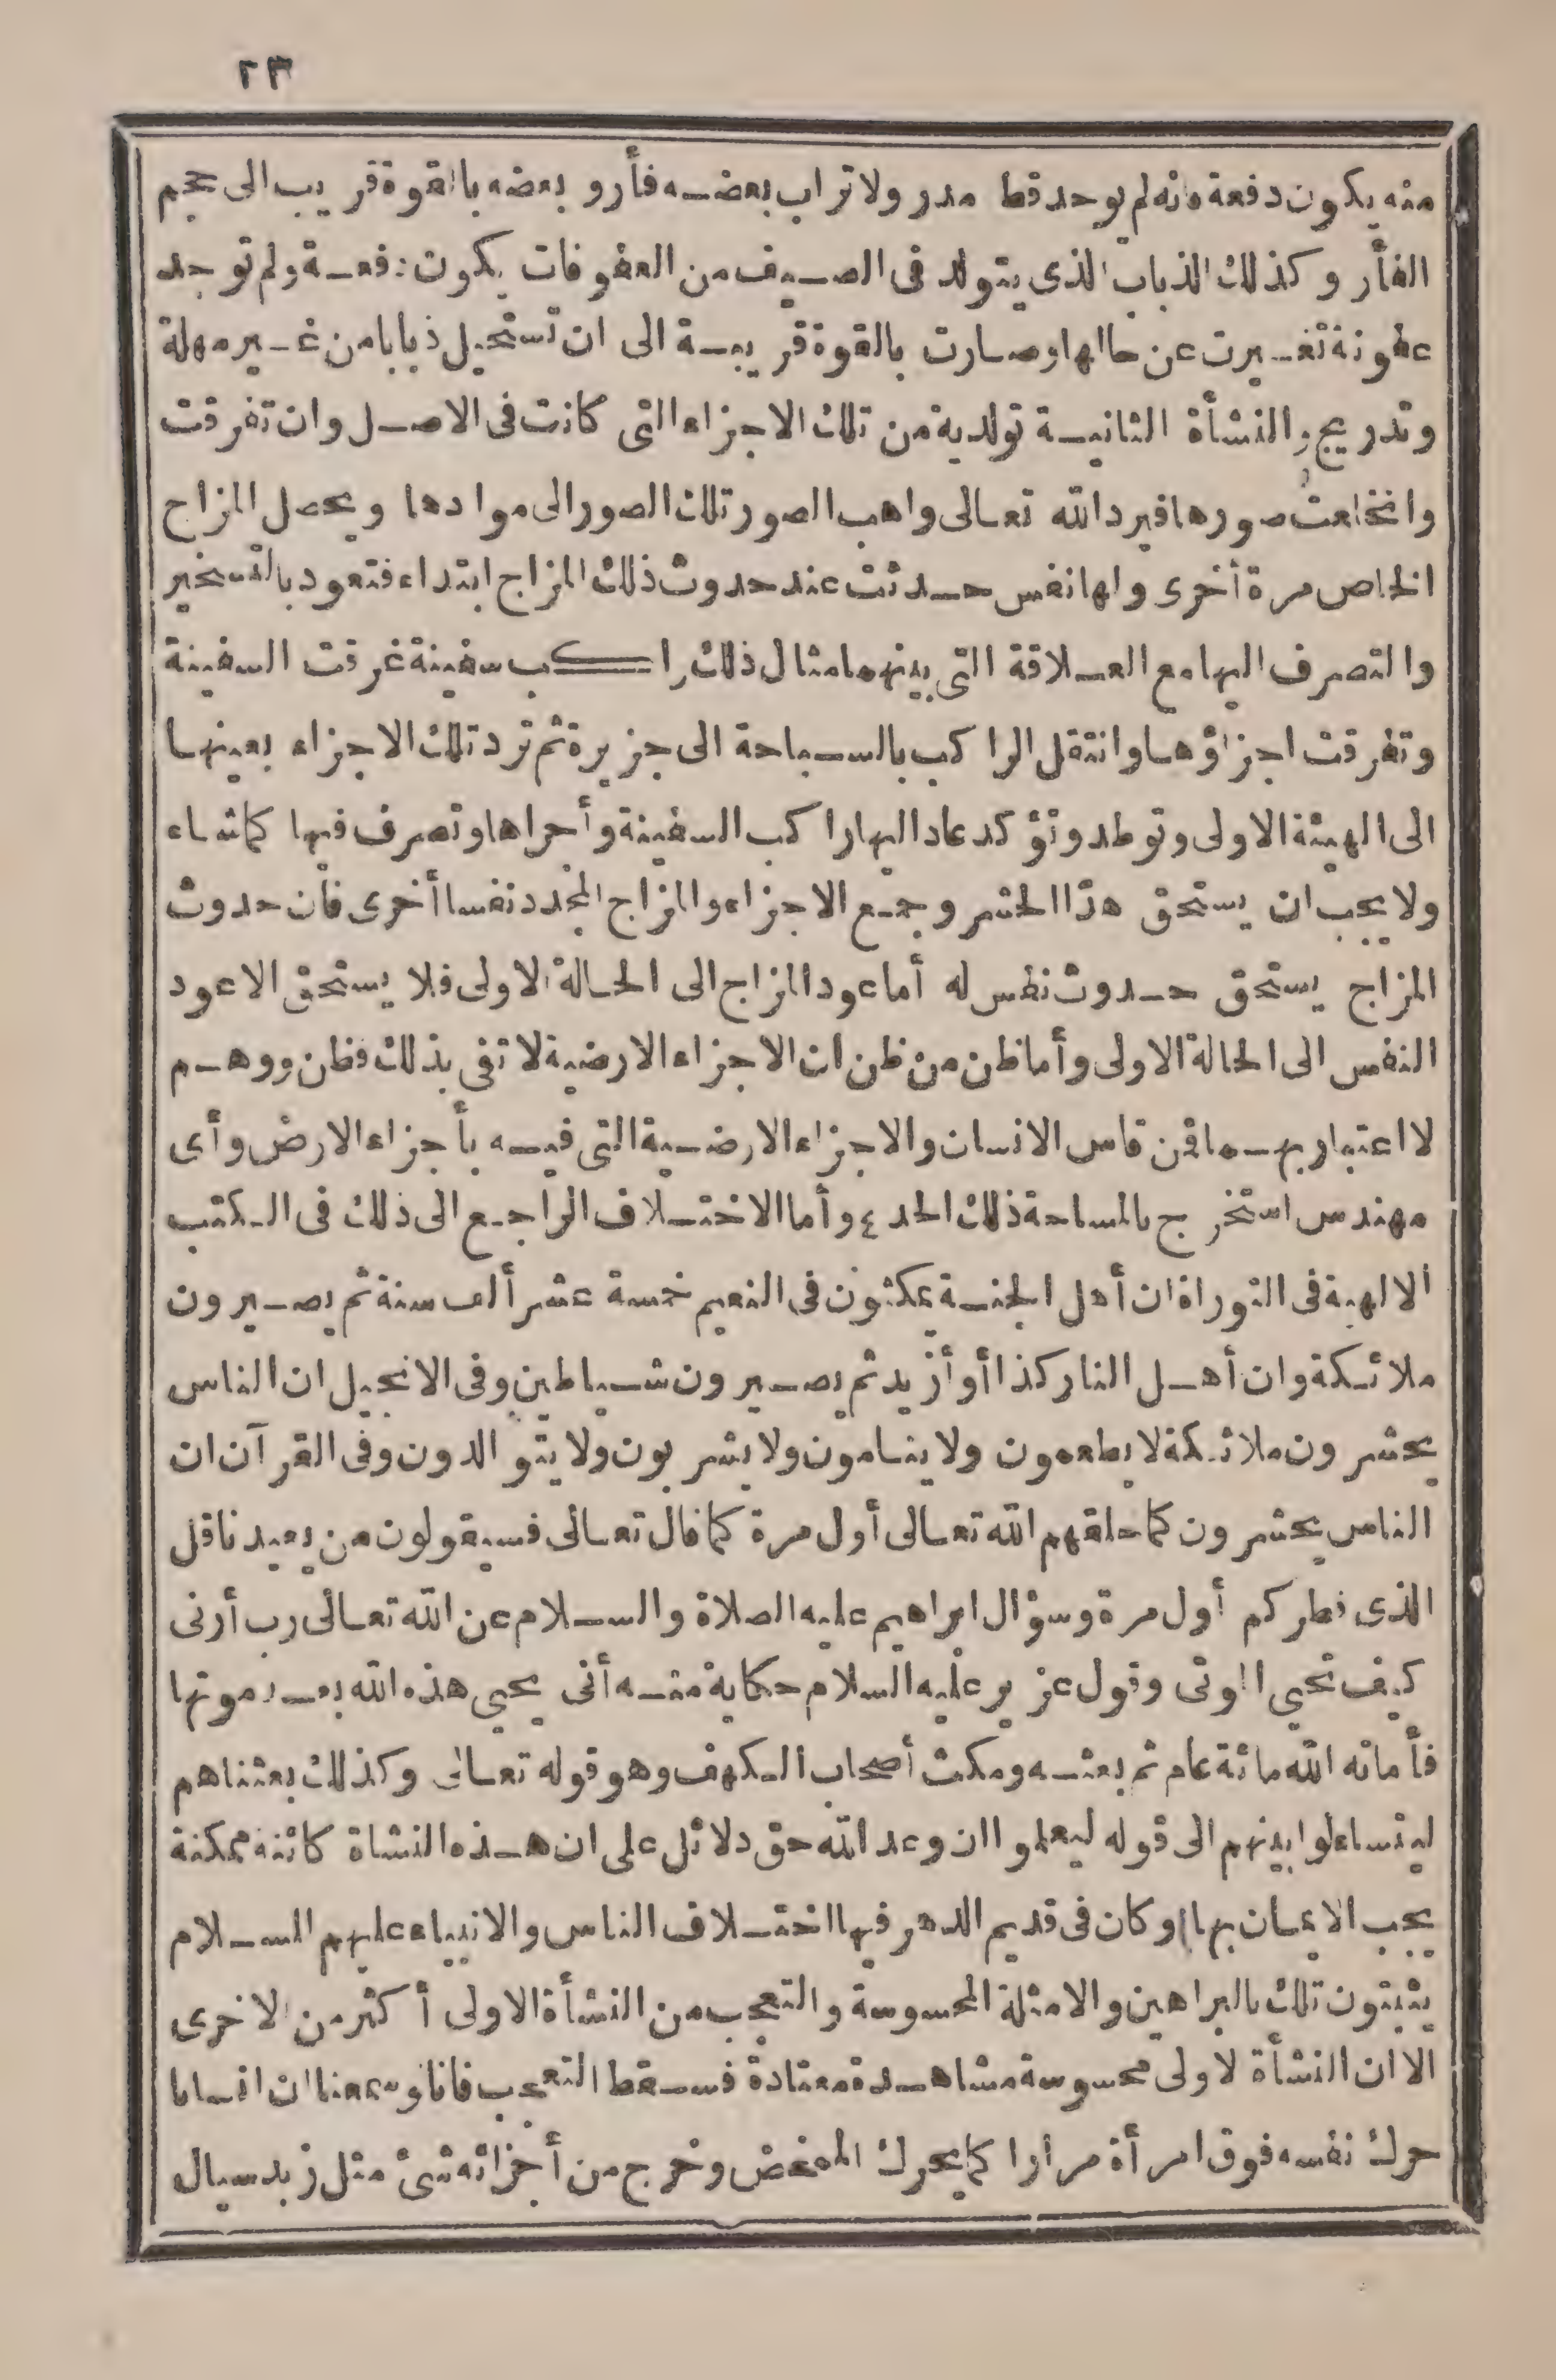 ٢٣
منه يكون دفعة فانه لم يوجد قط مدر ولا تراب بعضه فأر و بعضه بالقوة قريب الى حجم
الفأر وكذلك الذباب الذى يتولد فى الصيف من العفوفات يكون دفعة ولم توجد
عفونة تغيرت عن حالها وصارت بالقوة قريبة الى ان تستحيل ذبابا من غير مهلة
وتدريج والنشأة الثانية تولدية من تلك الاجزاء التى كانت فى الاصل وان تفرقت
وانخلعت صورها فيرد الله تعالى واهب الصور تلك الصور الى موادها ويحصل المزاج
الخاص مرة أخرى ولها نفس حدثت عند حدوث ذلك المزاج ابتداء فتعود بالتسخير
والتصرف اليها مع العلاقة التى بينهما مثال ذلك راكب سفينة غرقت السفينة
وتفرقت اجزاؤها وانتقل الراكب بالسباحة الى جزيرة ثم ترد تلك الاجزاء بعينها
الى الهيئة الاولى وتوطد وتؤكد عاد اليها راكب السفينة وأجراها وتصرف فيها كما شاء
ولا يجب ان يستحق هذا الحشر وجمع الاجزاء والمزاج المجدد نفسا أخرى فان حدوث
المزاج يستحق حدوث نفس له أما عود المزاج الى الحالة الاولى فلا يستحق الا عود
النفس الى الحالة الاولى وأما ظن من ظن ان الاجزاء الارضية لا تفى بذلك فظن ووهم
لا اعتبار بهما فمن قاس الانسان والاجزاء الارضية التى فيه بأجزاء الارض وأى
مهندس استخرج بالمساحة ذلك الحد ع وأما الاختلاف الراجع الى ذلك فى الكتب
الالهية فى التوراة ان أهل الجنة يمكثون فى النعيم خمسة عشر ألف سنة ثم يصيرون
ملائكة وان أهل النار كذا أو أزيد ثم يصيرون شياطين وفى الانجيل ان الناس
يحشرون ملائكة لا يطعمون ولا ينامون ولا يشربون ولا يتوالدون وفى القرآن ان
الناس يحشرون كما خلقهم الله تعالى أول مرة كما قال تعالى فسيقولون من يعيدنا قل
الذى فطركم أول مرة وسؤال ابراهيم عليه الصلاة والسلام عن الله تعالى رب أرنى
كيف تحيى الموتى وقول عزير عليه السلام حكاية منه أنى يحيى هذه الله بعد موتها
فأماته الله مائة عام ثم بعثه ومكث أصحاب الكهف وهو قوله تعالى وكذلك بعثناهم
ليتساءلوا بينهم الى قوله ليعلموا ان وعد الله حق دلائل على ان هذه النشاة كائنة ممكنة
يجب الايمان بها) وكان فى قديم الدهر فيها اختلاف الناس والانبياء عليهم السلام
يثبتون تلك بالبراهين والامثلة المحسوسة والتعجب من النشأة الاولى أكثر من الاخرى
الا ان النشأة لاولى محسوسة مشاهدة معتادة فسقط التعجب فانا لو سمعنا ان انسانا
حرك نفسه فوق امرأة مرارا كما يحرك الممخض وخرج من أجزائه شئ مثل زبد سيال